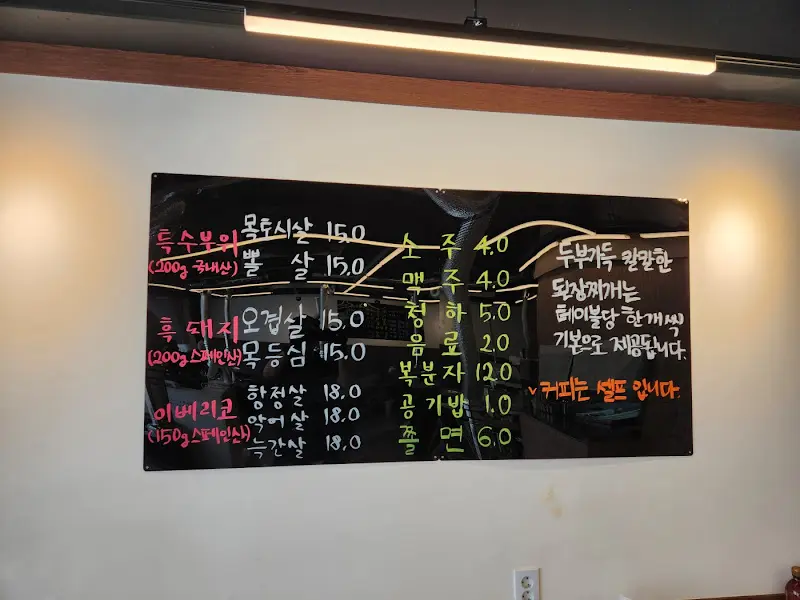 특수부위
(200g 국내산)
목토시살 15.0
뽈 살 15.0
흑돼지
(200g 스페인산)
오겹살 15.0
목등심 15.0
이베리코
(150g 스페인산)
항정살 18.0
악어살 18.0
늑간살 18.0
소주 4.0
맥주 4.0
청하 5.0
음료 2.0
복분자 12.0
공기밥 1.0
쫄면 6.0
두부가득 칼칼한
된장찌개는
테이블당 한개씩
기본으로 제공됩니다.
커피는 셀프 입니다.